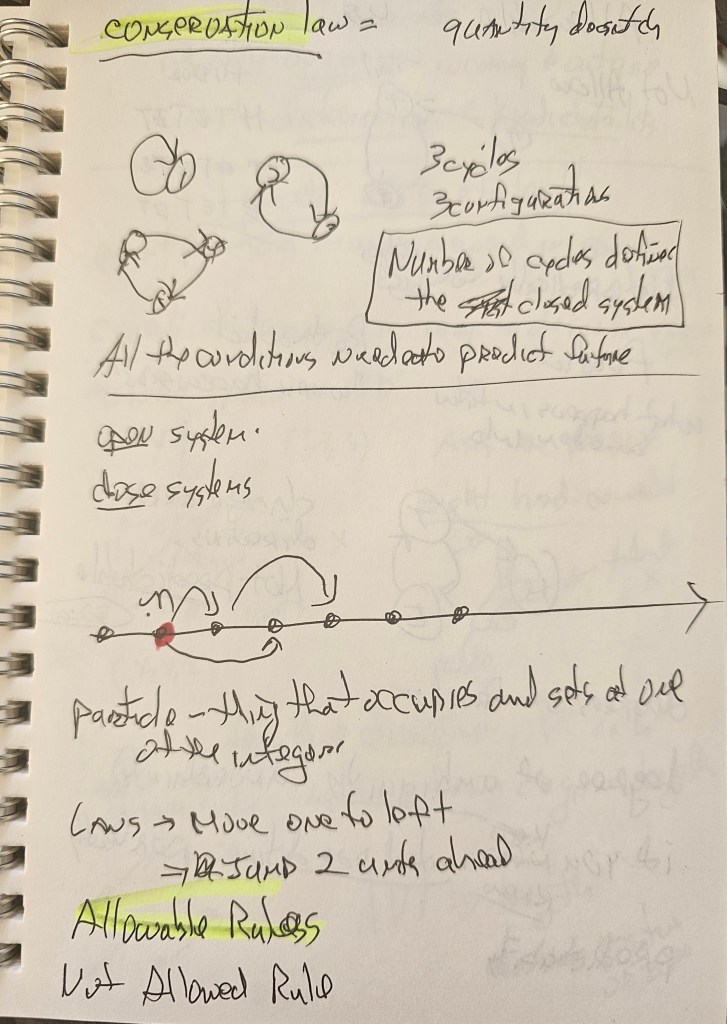 CONSERVATION law = quantity doesntch
3 cycles
3 configurations
Number of cycles defines
the closed system
All the conditions needed to predict future
open system.
close systems
n
particle - thing that occupies and sets at one
of the integers
LAWS → Move one to left
→ Jump 2 units ahead
Allowable Rules
Not Allowed Rule